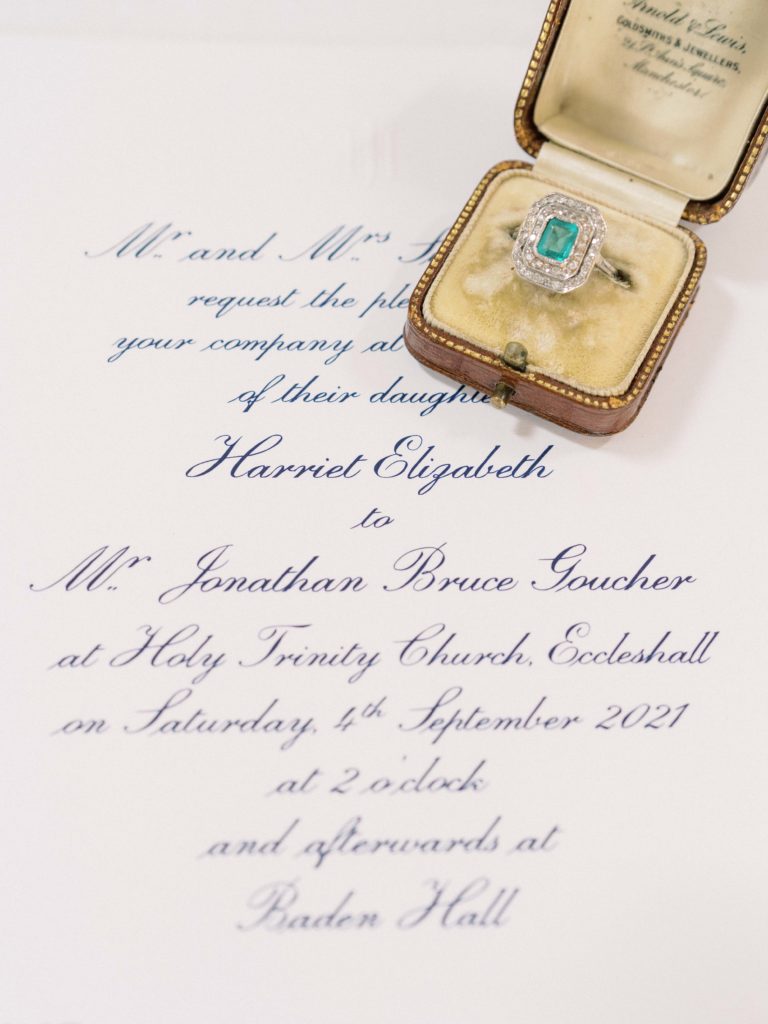 Arnold & Lewis,
GOLDSMITHS & JEWELLERS,
St Ann's Square,
Manchester
Mr. and Mrs
request the
your company at
of their
Harriet Elizabeth
to
Mr. Jonathan Bruce Goucher
at Holy Trinity Church, Eccleshall
on Saturday, 4th September 2021
at 2 o'clock
and afterwards at
Baden Hall